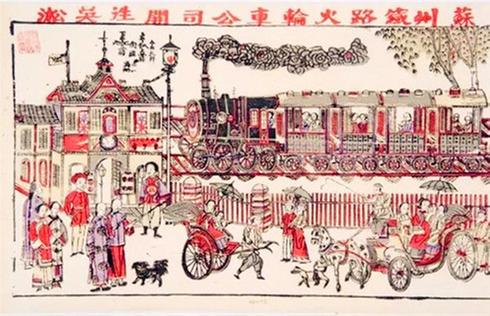 蘇州鐵路火輪車公司開往吳淞